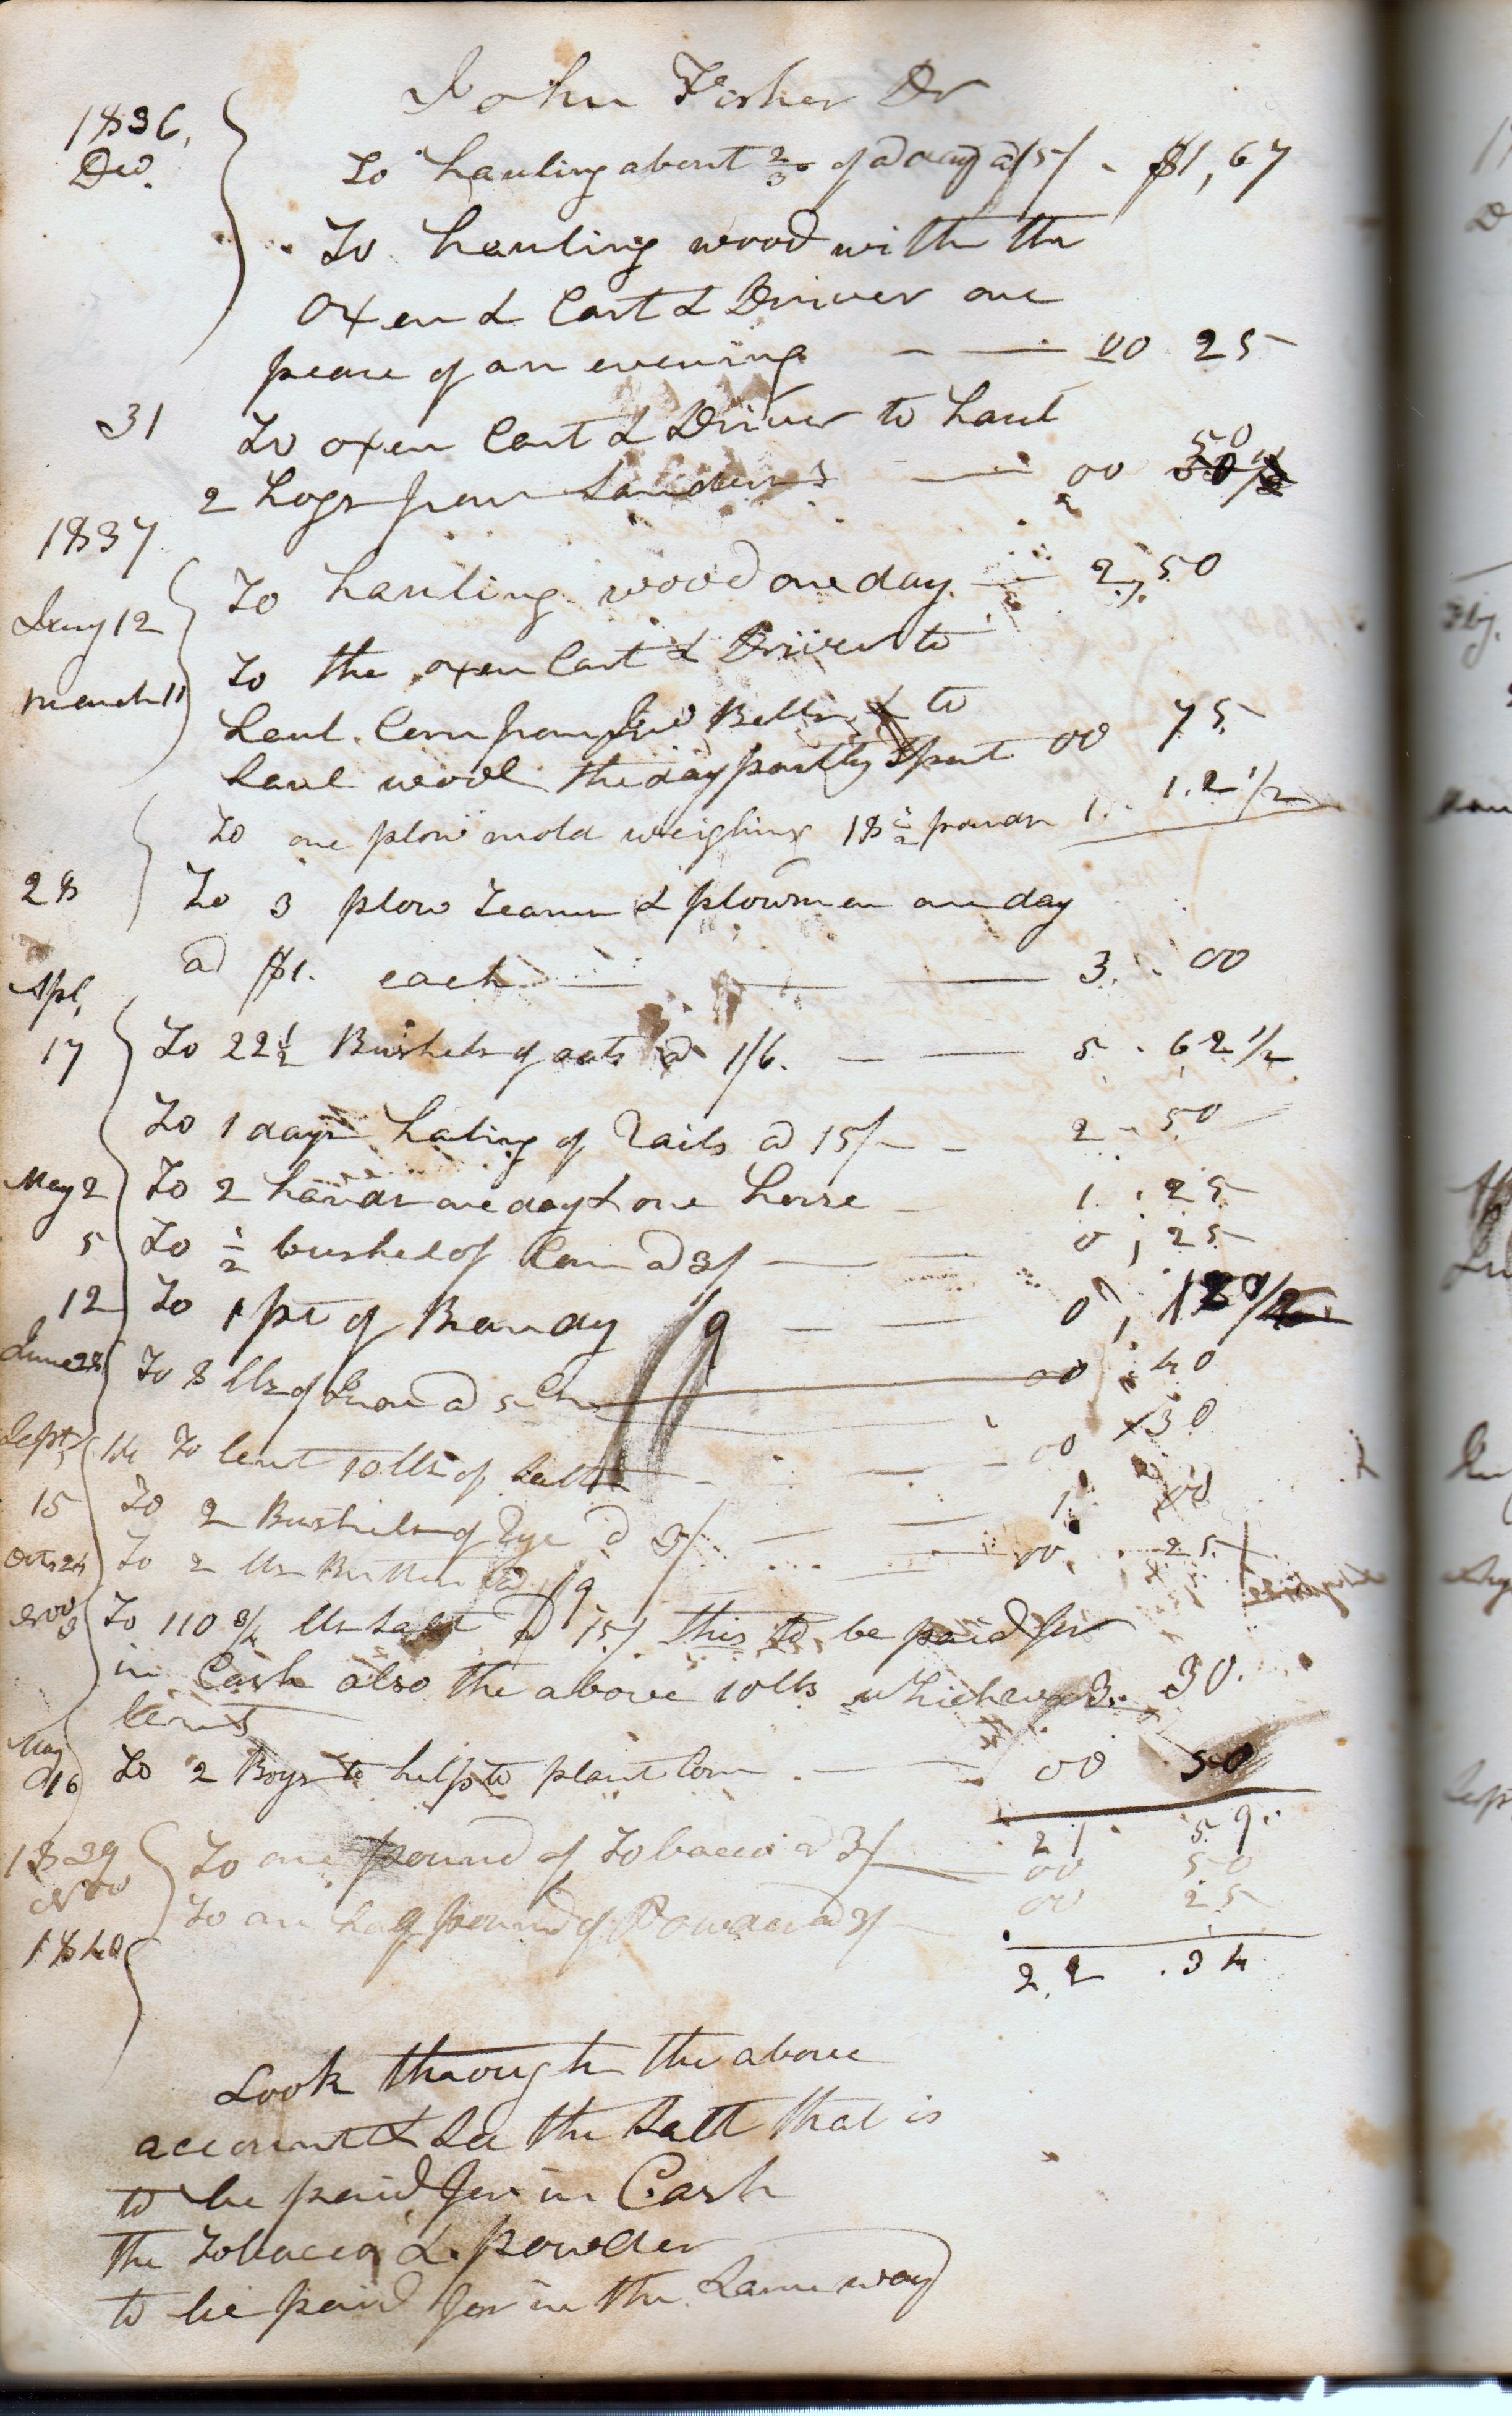 John Fisher Dr
1836,
Dec. To hauling about 2/3 of a day a 15/ - $1,67
To hauling wood with the
Oxen & Cart & Driver one
peace of an evening - — 00 25
31 To oxen Cart & Driver to haul
2 hogs from Sanders — 00 50
1837
Jany 12 To hauling wood one day — 2, 50
March 11 To the oxen Cart & Driver to
haul Corn from Bells & to
haul wood the day partly Spent 00 75
To one plow mold weighing 18 1/2 pounds 1. 1.2 1/2
28 To 3 plow Teams & plowmen one day
a $1. each — 3. 00
Apl,
17 To 22 1/2 Bushels of oats a 1/6. — — 5. 62 1/2
To 1 days haling of Rails a 15/ - 2 - 50
May 2 To 2 hands one day & one horse - 1. 25
5 To 1/2 bushel of Corn a 3/ — 0, 25
12 To 1 pt of Brandy /9 — 0, 12
June 28 To 8 lbs of a 5 00 40
Sept, 14 To lent 10 lbs of Salt - - 00 30
15 To 2 Bushels of Rye a 3/ — 1. 00
Oct. 24 To 2 lbs Butter a /9 00, 25
Nov 3 To 110 3/4 lbs Salt a 15/ this to be paid for
in Cash also the above 10 lbs which was 3. 30.
lent
May
16 To 2 Boys to help to plant Corn. — 00 50
21. 59.
1839
Nov To one pound of Tobacco a 3/ — 00 50
To one half pound of Powder a 3/ 00 25
1840
22. 34
Look through the above
account & See the Salt that is
to be paid for in Cash
the Tobacco & powder
to be paid for in the Same way